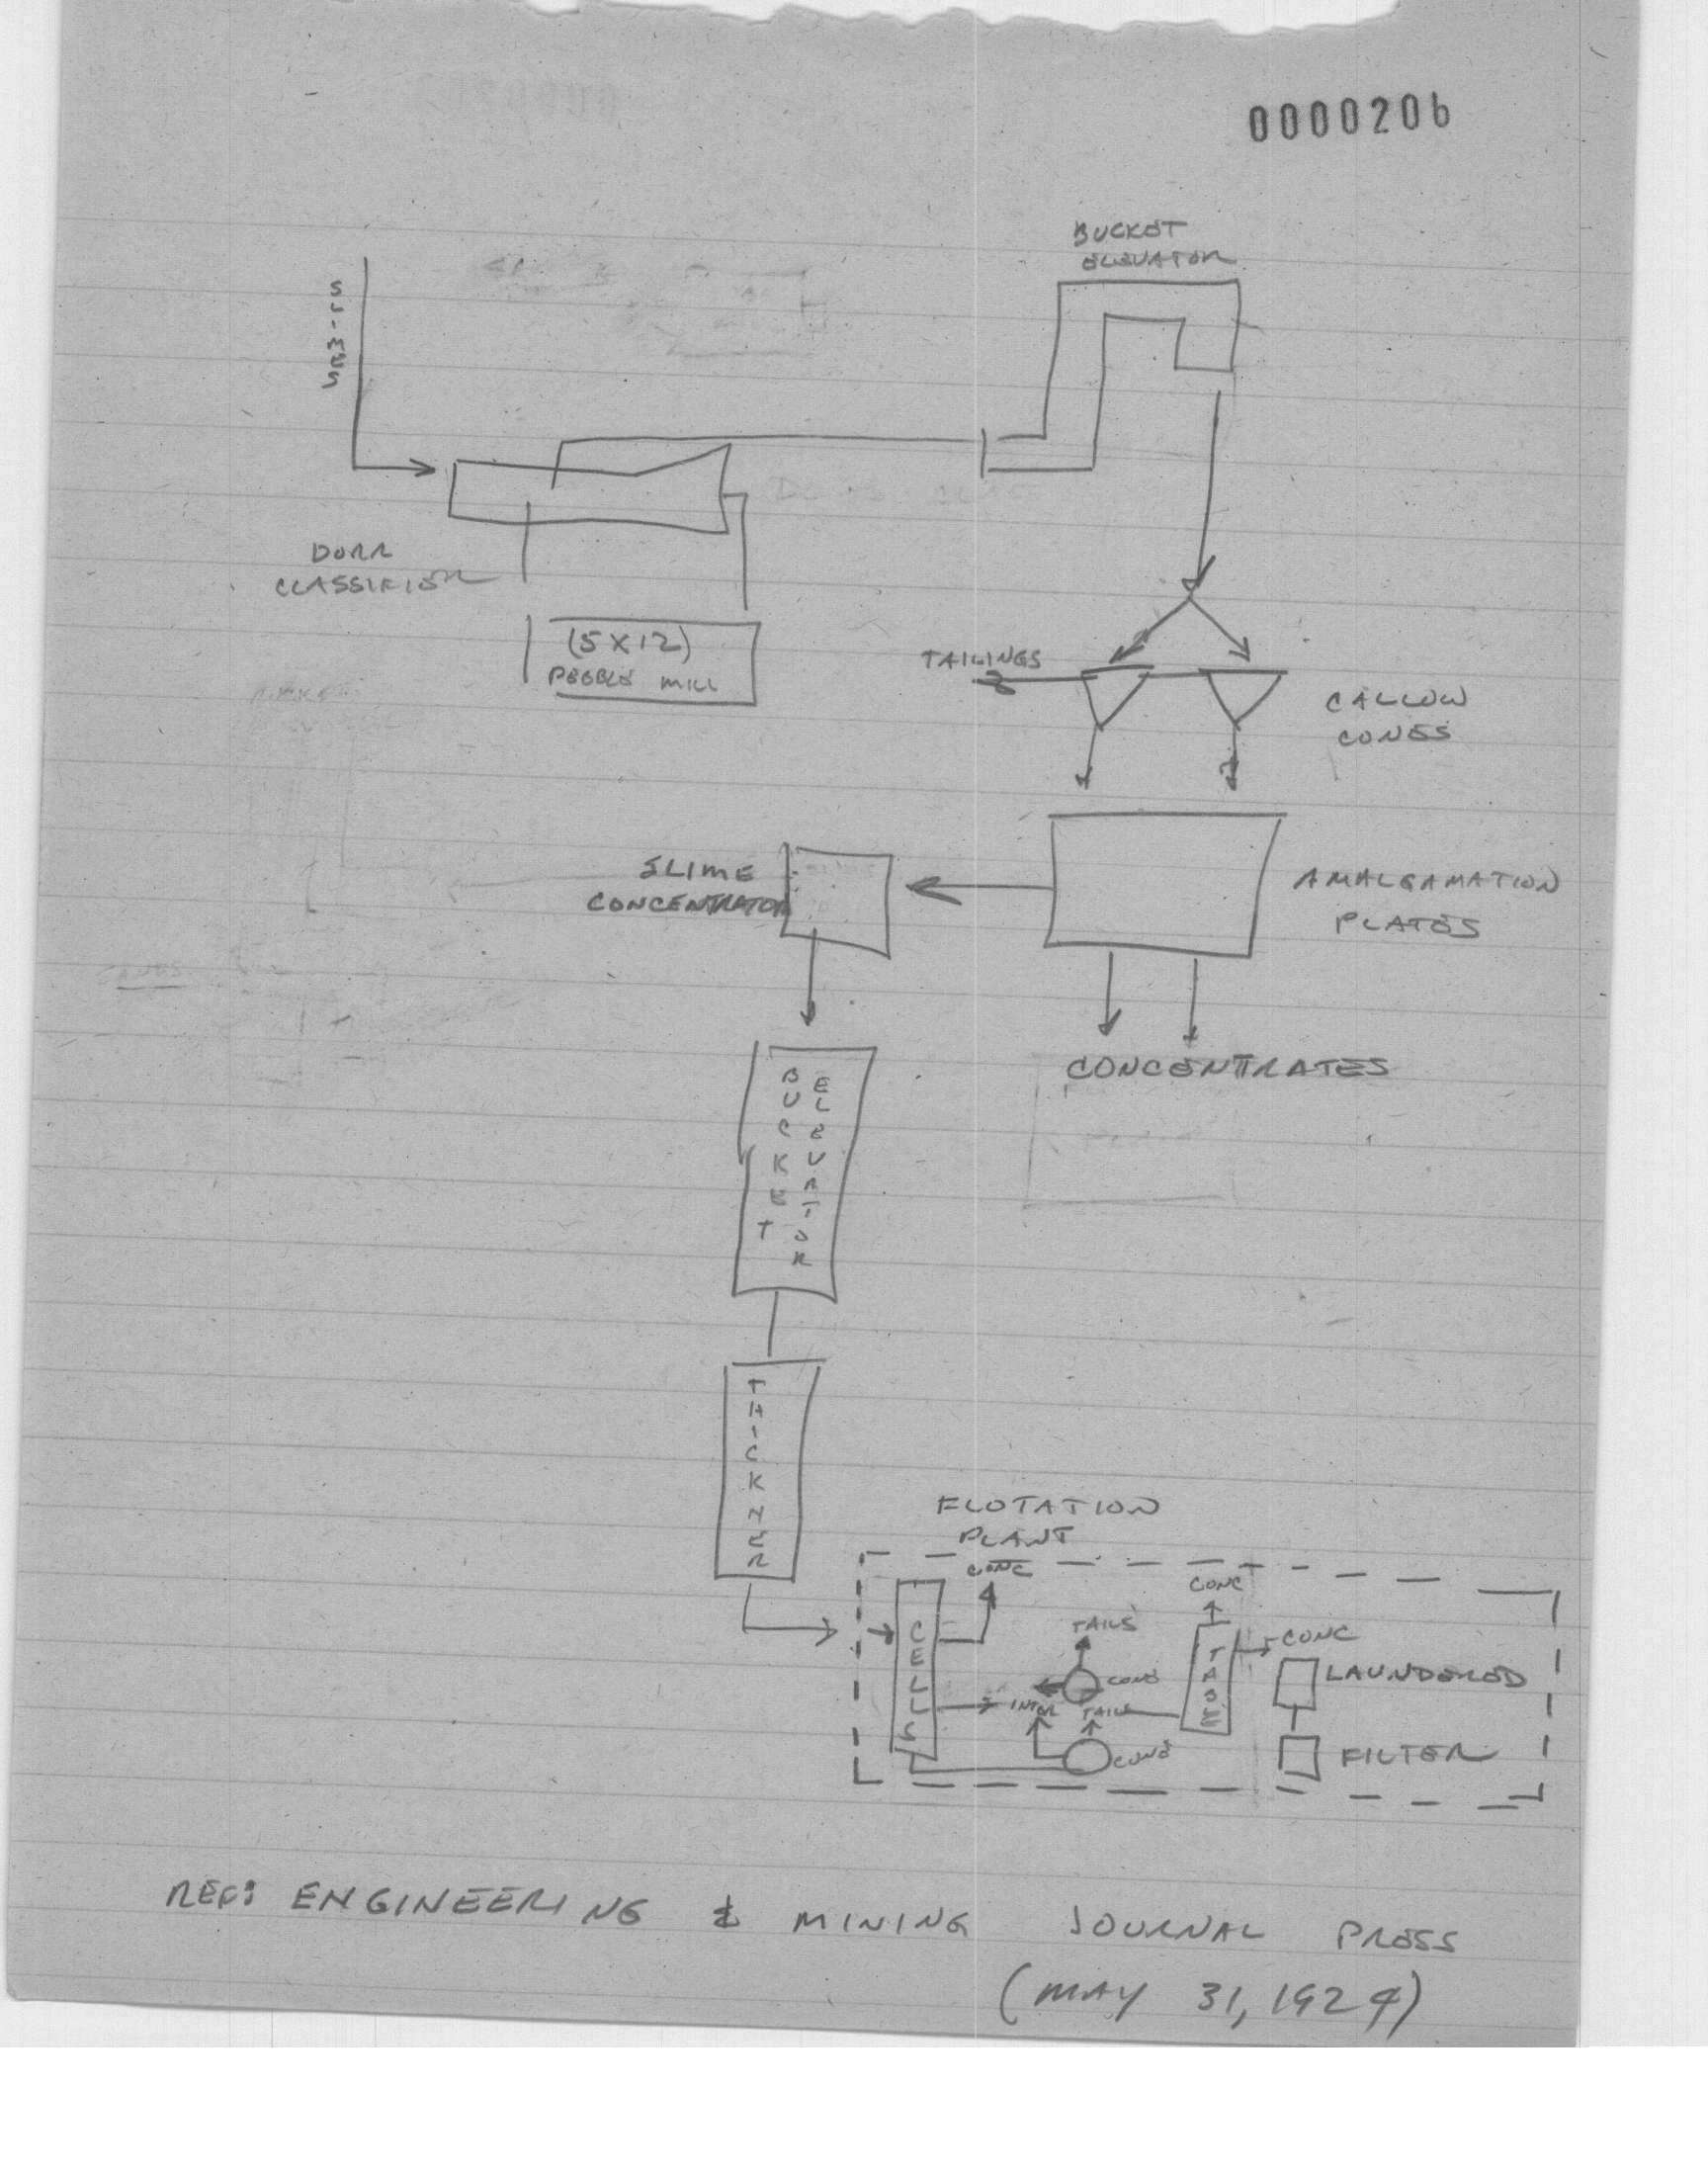 0000206
BUCKET
ELEVATOR
DORR
CLASSIFIER
(5 X 12)
PEBBLE MILL
TAILINGS
CALLOW
CONES
SLIME
CONCENTRATOR
AMALGAMATION
PLATES
CONCENTRATES
BUCKET
ELEVATOR
THICKNER
FLOTATION
PLANT
CONC
CONC
CELLS
TAILS
CONC
CONE
LAUNDERED
INTER
TAILS
TABLE
CONE
FILTER
REF: ENGINEERING & MINING JOURNAL PRESS
(MAY 31, 1924)